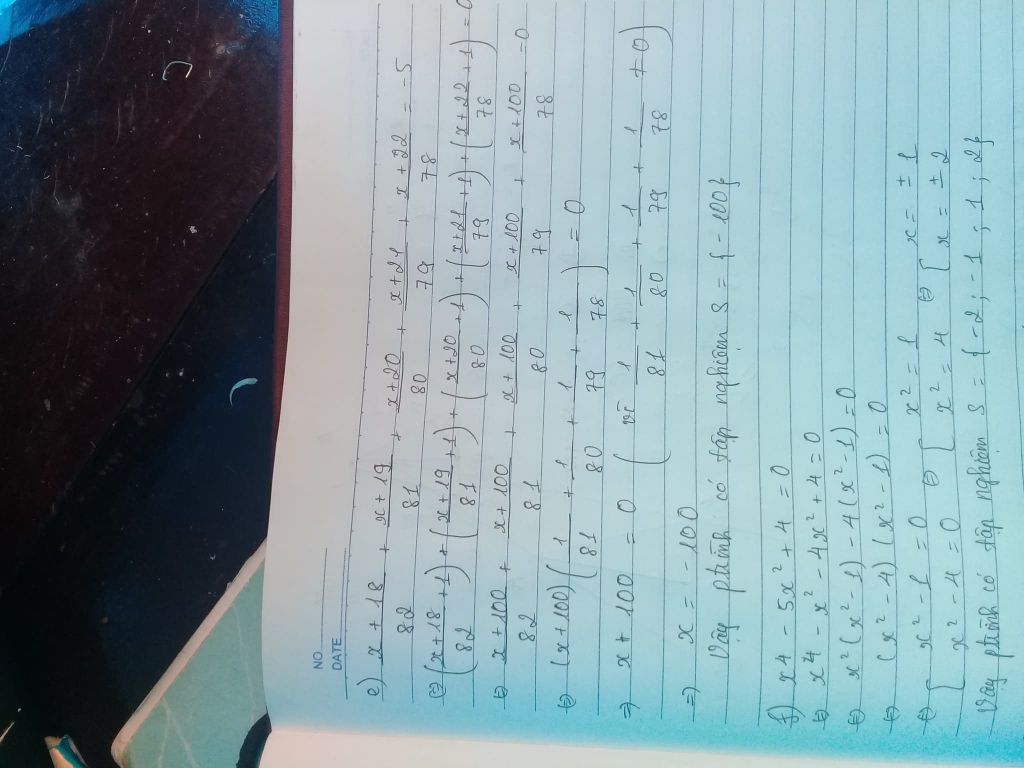 NO.
DATE
e) x+18/82 + x+19/81 + x+20/80 + x+21/79 + x+22/78 = -5
⇔ (x+18/82 + 1) + (x+19/81 + 1) + (x+20/80 + 1) + (x+21/79 + 1) + (x+22/78 + 1) = 0
⇔ x+100/82 + x+100/81 + x+100/80 + x+100/79 + x+100/78 = 0
⇔ (x+100) (1/81 + 1/80 + 1/79 + 1/78) = 0
⇒ x + 100 = 0 (vì 1/81 + 1/80 + 1/79 + 1/78 ≠ 0)
⇒ x = -100
Vậy ptrình có tập nghiệm S = {-100}
f) x⁴ - 5x² + 4 = 0
⇔ x⁴ - x² - 4x² + 4 = 0
⇔ x²(x² - 1) - 4(x² - 1) = 0
⇔ (x² - 4) (x² - 1) = 0
⇔ [ x² - 1 = 0 ⇔ [ x² = 1 ⇔ [ x = ± 1
[ x² - 4 = 0 [ x² = 4 [ x = ± 2
Vậy ptrình có tập nghiệm S = {-2; -1; 1; 2}